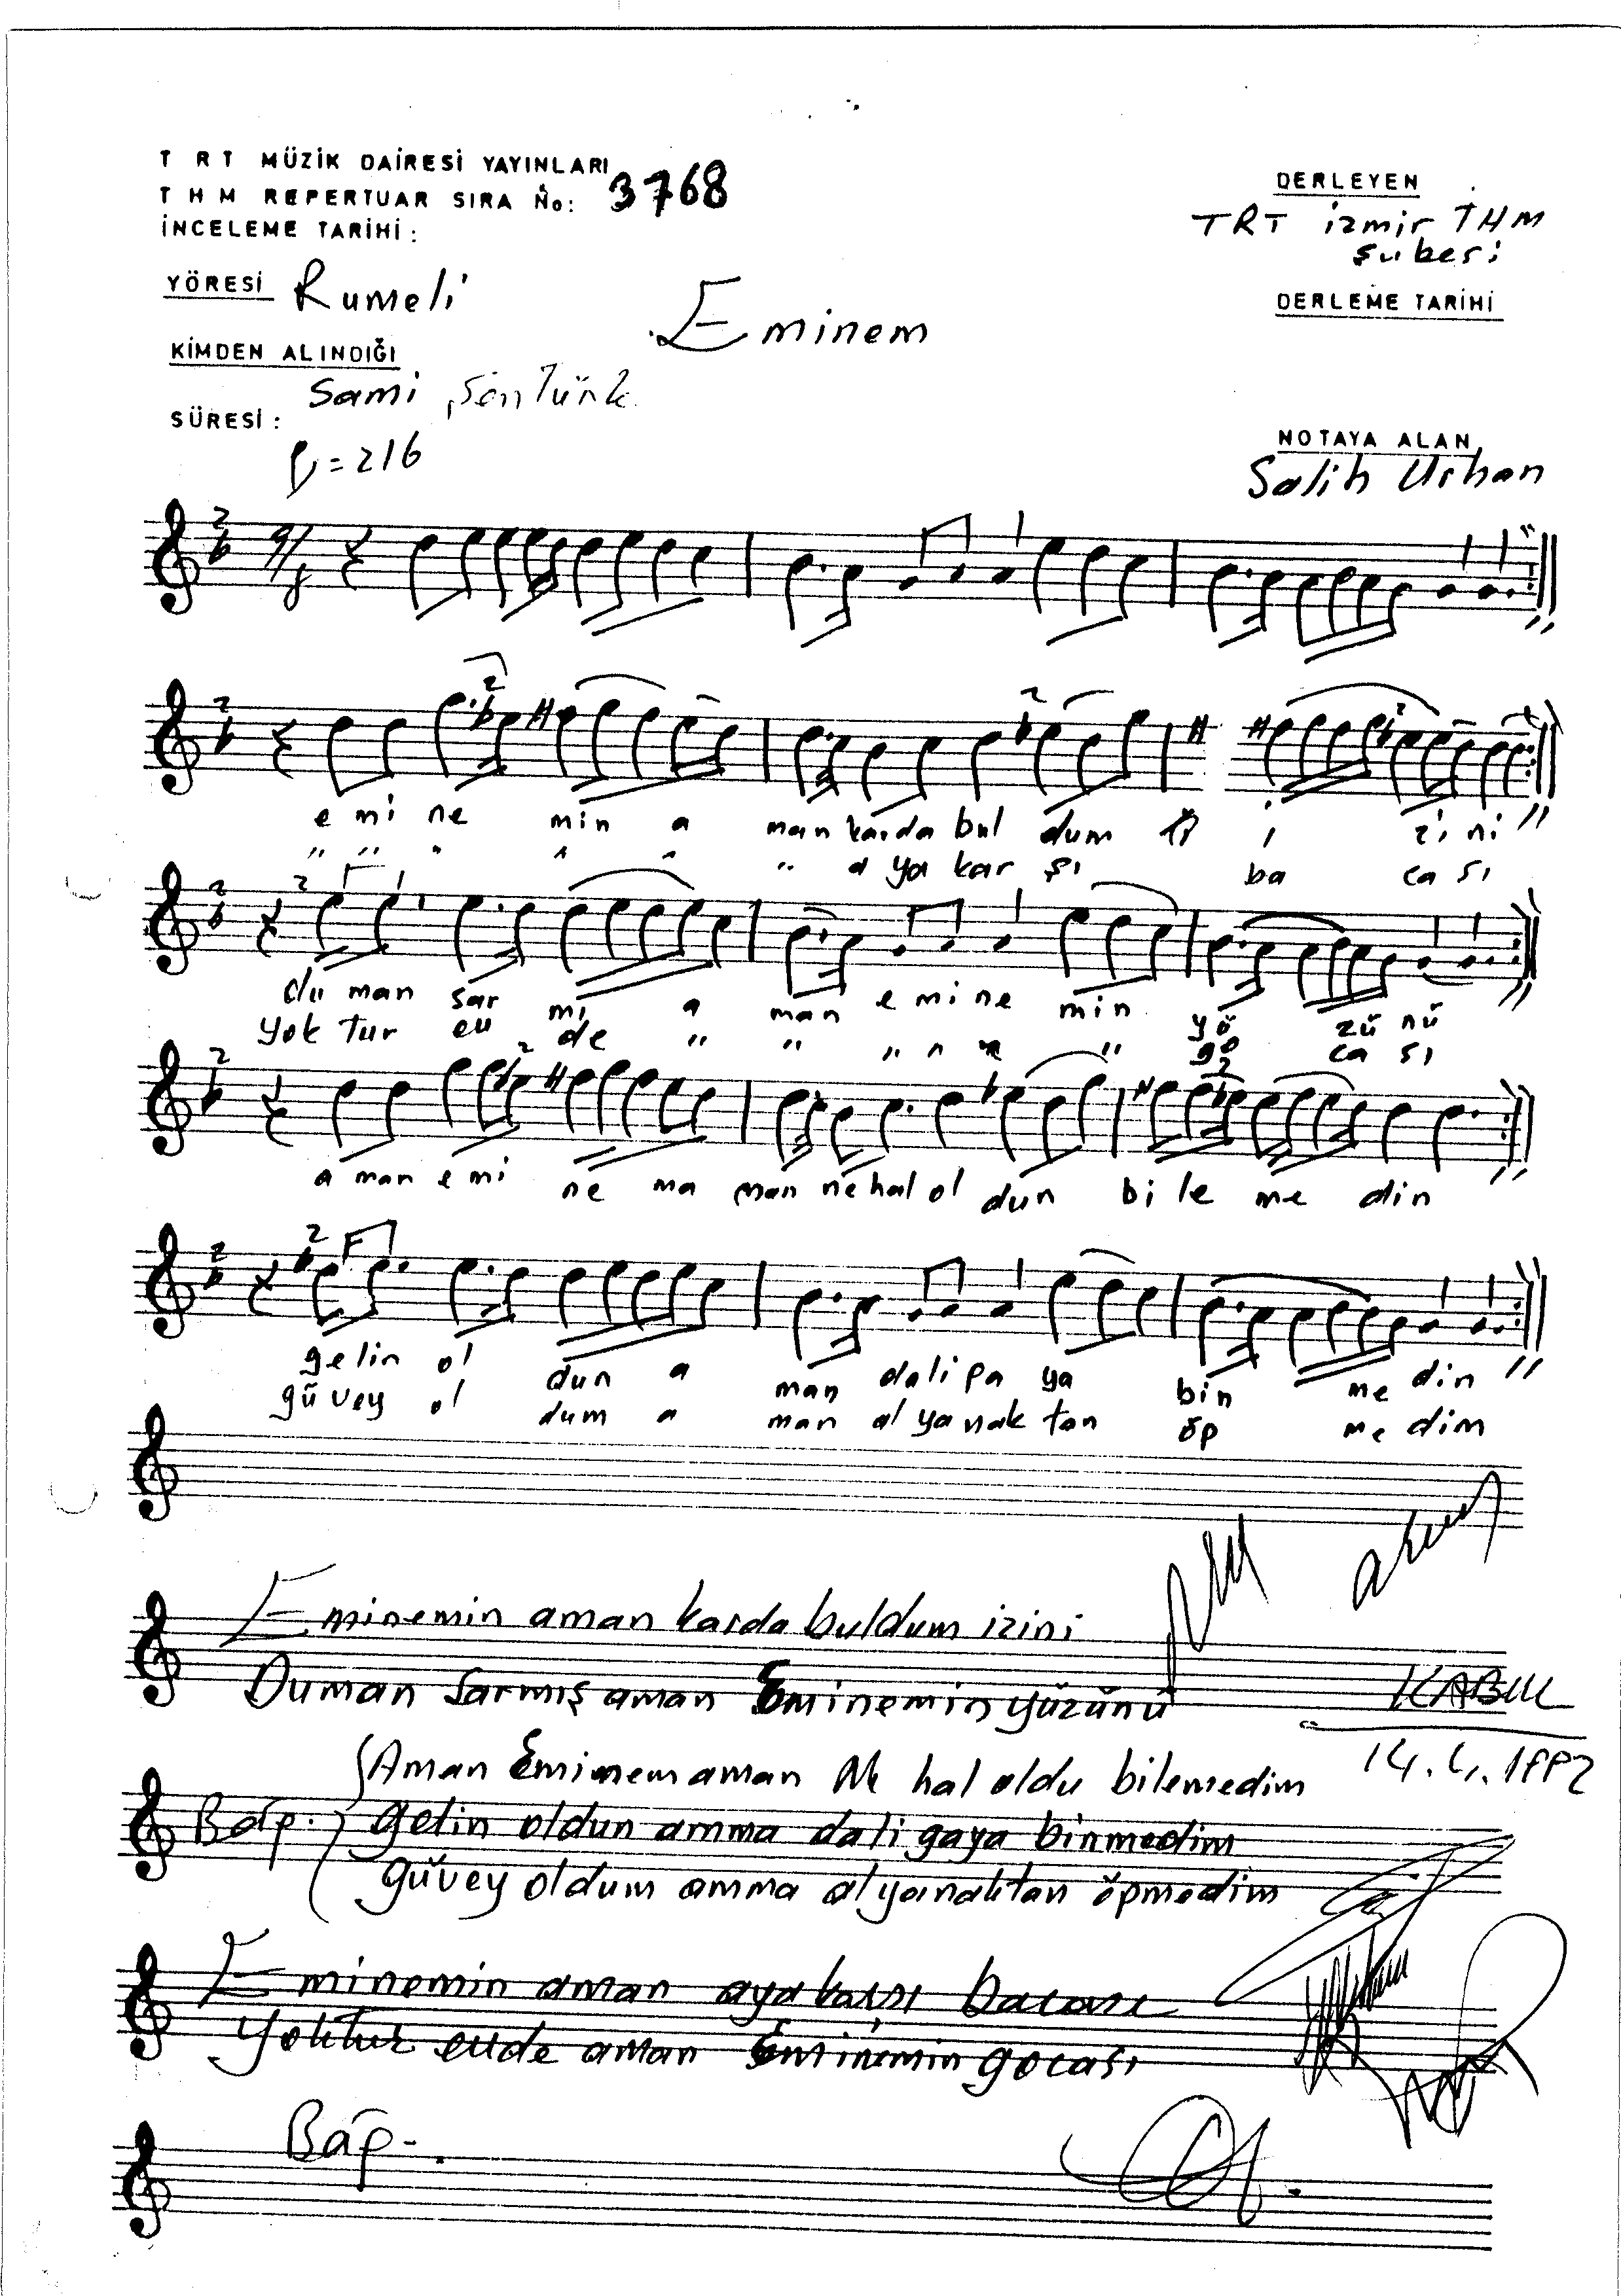 TRT MÜZİK DAİRESİ YAYINLARI
THM REPERTUAR SIRA No: 3768
İNCELEME TARİHİ:
DERLEYEN
TRT izmir THM
şubesi
YÖRESİ Rumeli
DERLEME TARİHİ
Eminem
KİMDEN ALINDIĞI
Sami Şentürk
SÜRESİ:
= 216
NOTAYA ALAN
Salih Urhan
9/8
e mi ne min a man karda bul dum i zi ni
" " " " " " a ya kar şı ba ca sı
du man sar mı a man e mi ne min yü zü nü
yok tur ev de " " " " " " go ca sı
a man e mi ne ma man ne hal ol dun bi le me din
gelin ol dun a man dali pa ya bin me din
güvey ol dum a man al ya nak tan öp me dim
Eminemin aman karda buldum izini
Duman sarmış aman Eminemin yüzünü
KABUL
Aman Eminem aman Ne hal oldu bilemedim
Bağ. gelin oldun amma dali gaya binmedim
güvey oldum amma al yanaktan öpmedim
Eminemin aman aya karşı bacası
Yoktur evde aman Eminemin gocası
Bağ.